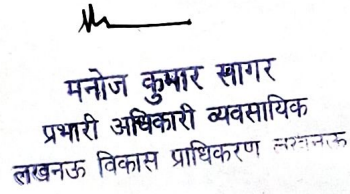 मनोज कुमार सागर
प्रभारी अधिकारी व्यवसायिक
लखनऊ विकास प्राधिकरण लखनऊ